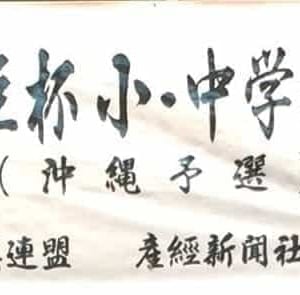 杯小・中学
(沖縄予選
連盟 産經新聞社